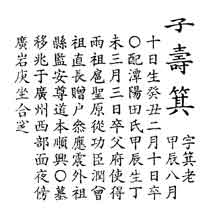 子壽箕
字箕老
甲辰八月
十日生癸丑二月十日卒
〇配潭陽田氏甲辰生丁
未三月三日卒父府使得
雨祖扈聖原從功臣潤曾
祖直長贈戶叅應震外祖
縣監安尊道本順興〇墓
移兆于廣州西部面夜傍
廣岩庚坐合窆